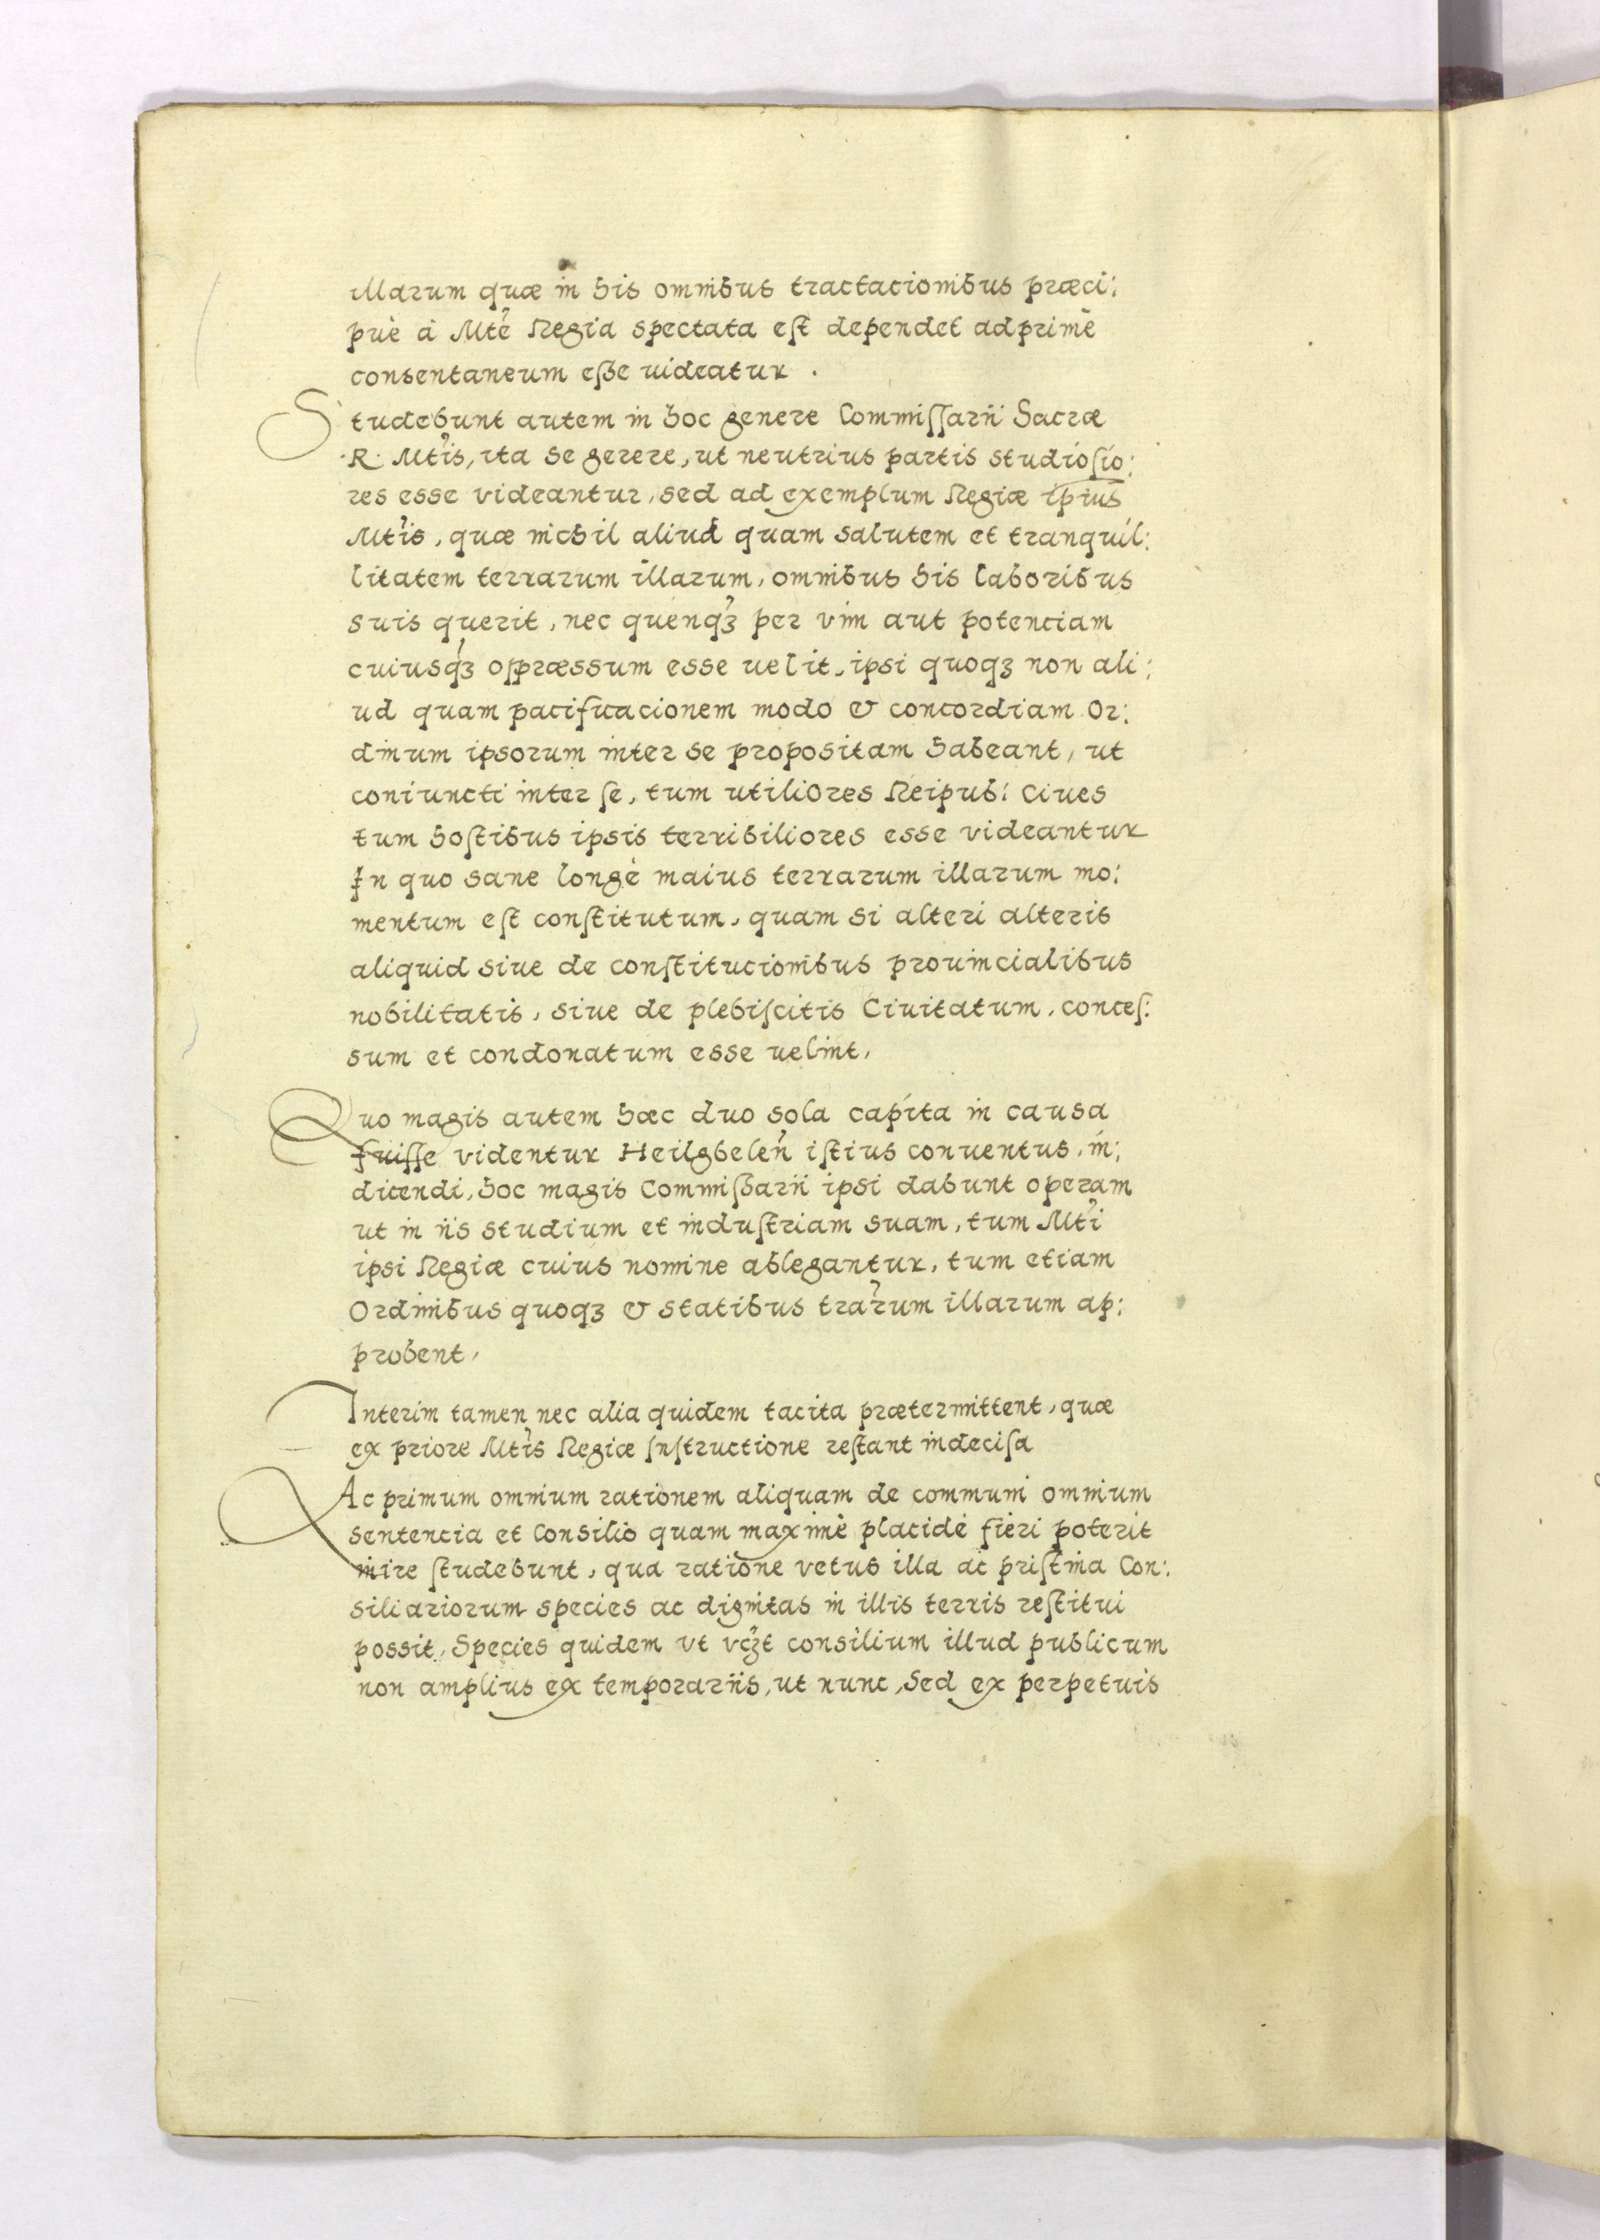 illarum quæ in his omnibus tractacionibus præci:
puè à Mte Regia spectata est dependet adprimè
consentaneum esse uideatur .
Studebunt autem in hoc genere Commissarii Sacræ
R. Mtis, ita se gerere, ut neutrius partis studiosio:
res esse videantur, sed ad exemplum Regiæ ipius
Mtis, quæ nichil aliud quam salutem et tranquil:
litatem terrarum illarum, omnibus his laboribus
suis querit, nec quenqꝫ per vim aut potenciam
cuiusqꝫ oppræssum esse uelit, ipsi quoqꝫ non ali:
ud quam pacificacionem modo & concordiam Or:
dinum ipsorum inter se propositam habeant, ut
coniuncti inter se, tum utiliores Reipub: Ciues
tum hostibus ipsis terribiliores esse videantur
In quo sane longè maius terrarum illarum mo:
mentum est constitutum, quam si alteri alteris
aliquid siue de constitucionibus prouincialibus
nobilitatis, siue de plebiscitis Ciuitatum, conces:
sum et condonatum esse uelint,
Quo magis autem hæc duo sola capita in causa
fuisse videntur Heilgbelen istius conuentus, in:
dicendi, hoc magis Commissarii ipsi dabunt operam
ut in iis studium et industriam suam, tum Mti
ipsi Regiæ cuius nomine ablegantur, tum etiam
Ordinibus quoqꝫ & statibus trarum illarum ap:
probent,
Interim tamen nec alia quidem tacita prætermittent, quæ
ex priore Mtis Regiæ Instructione restant indecisa
Ac primum omnium rationem aliquam de communi omnium
sentencia et Consilio quam maximè placidè fieri poterit
inire studebunt, qua ratione vetus illa ac pristina Con:
siliariorum species ac dignitas in illis terris restitui
possit, Species quidem vt vcꝫt consilium illud publicum
non amplius ex temporariis, ut nunc, Sed ex perpetuis